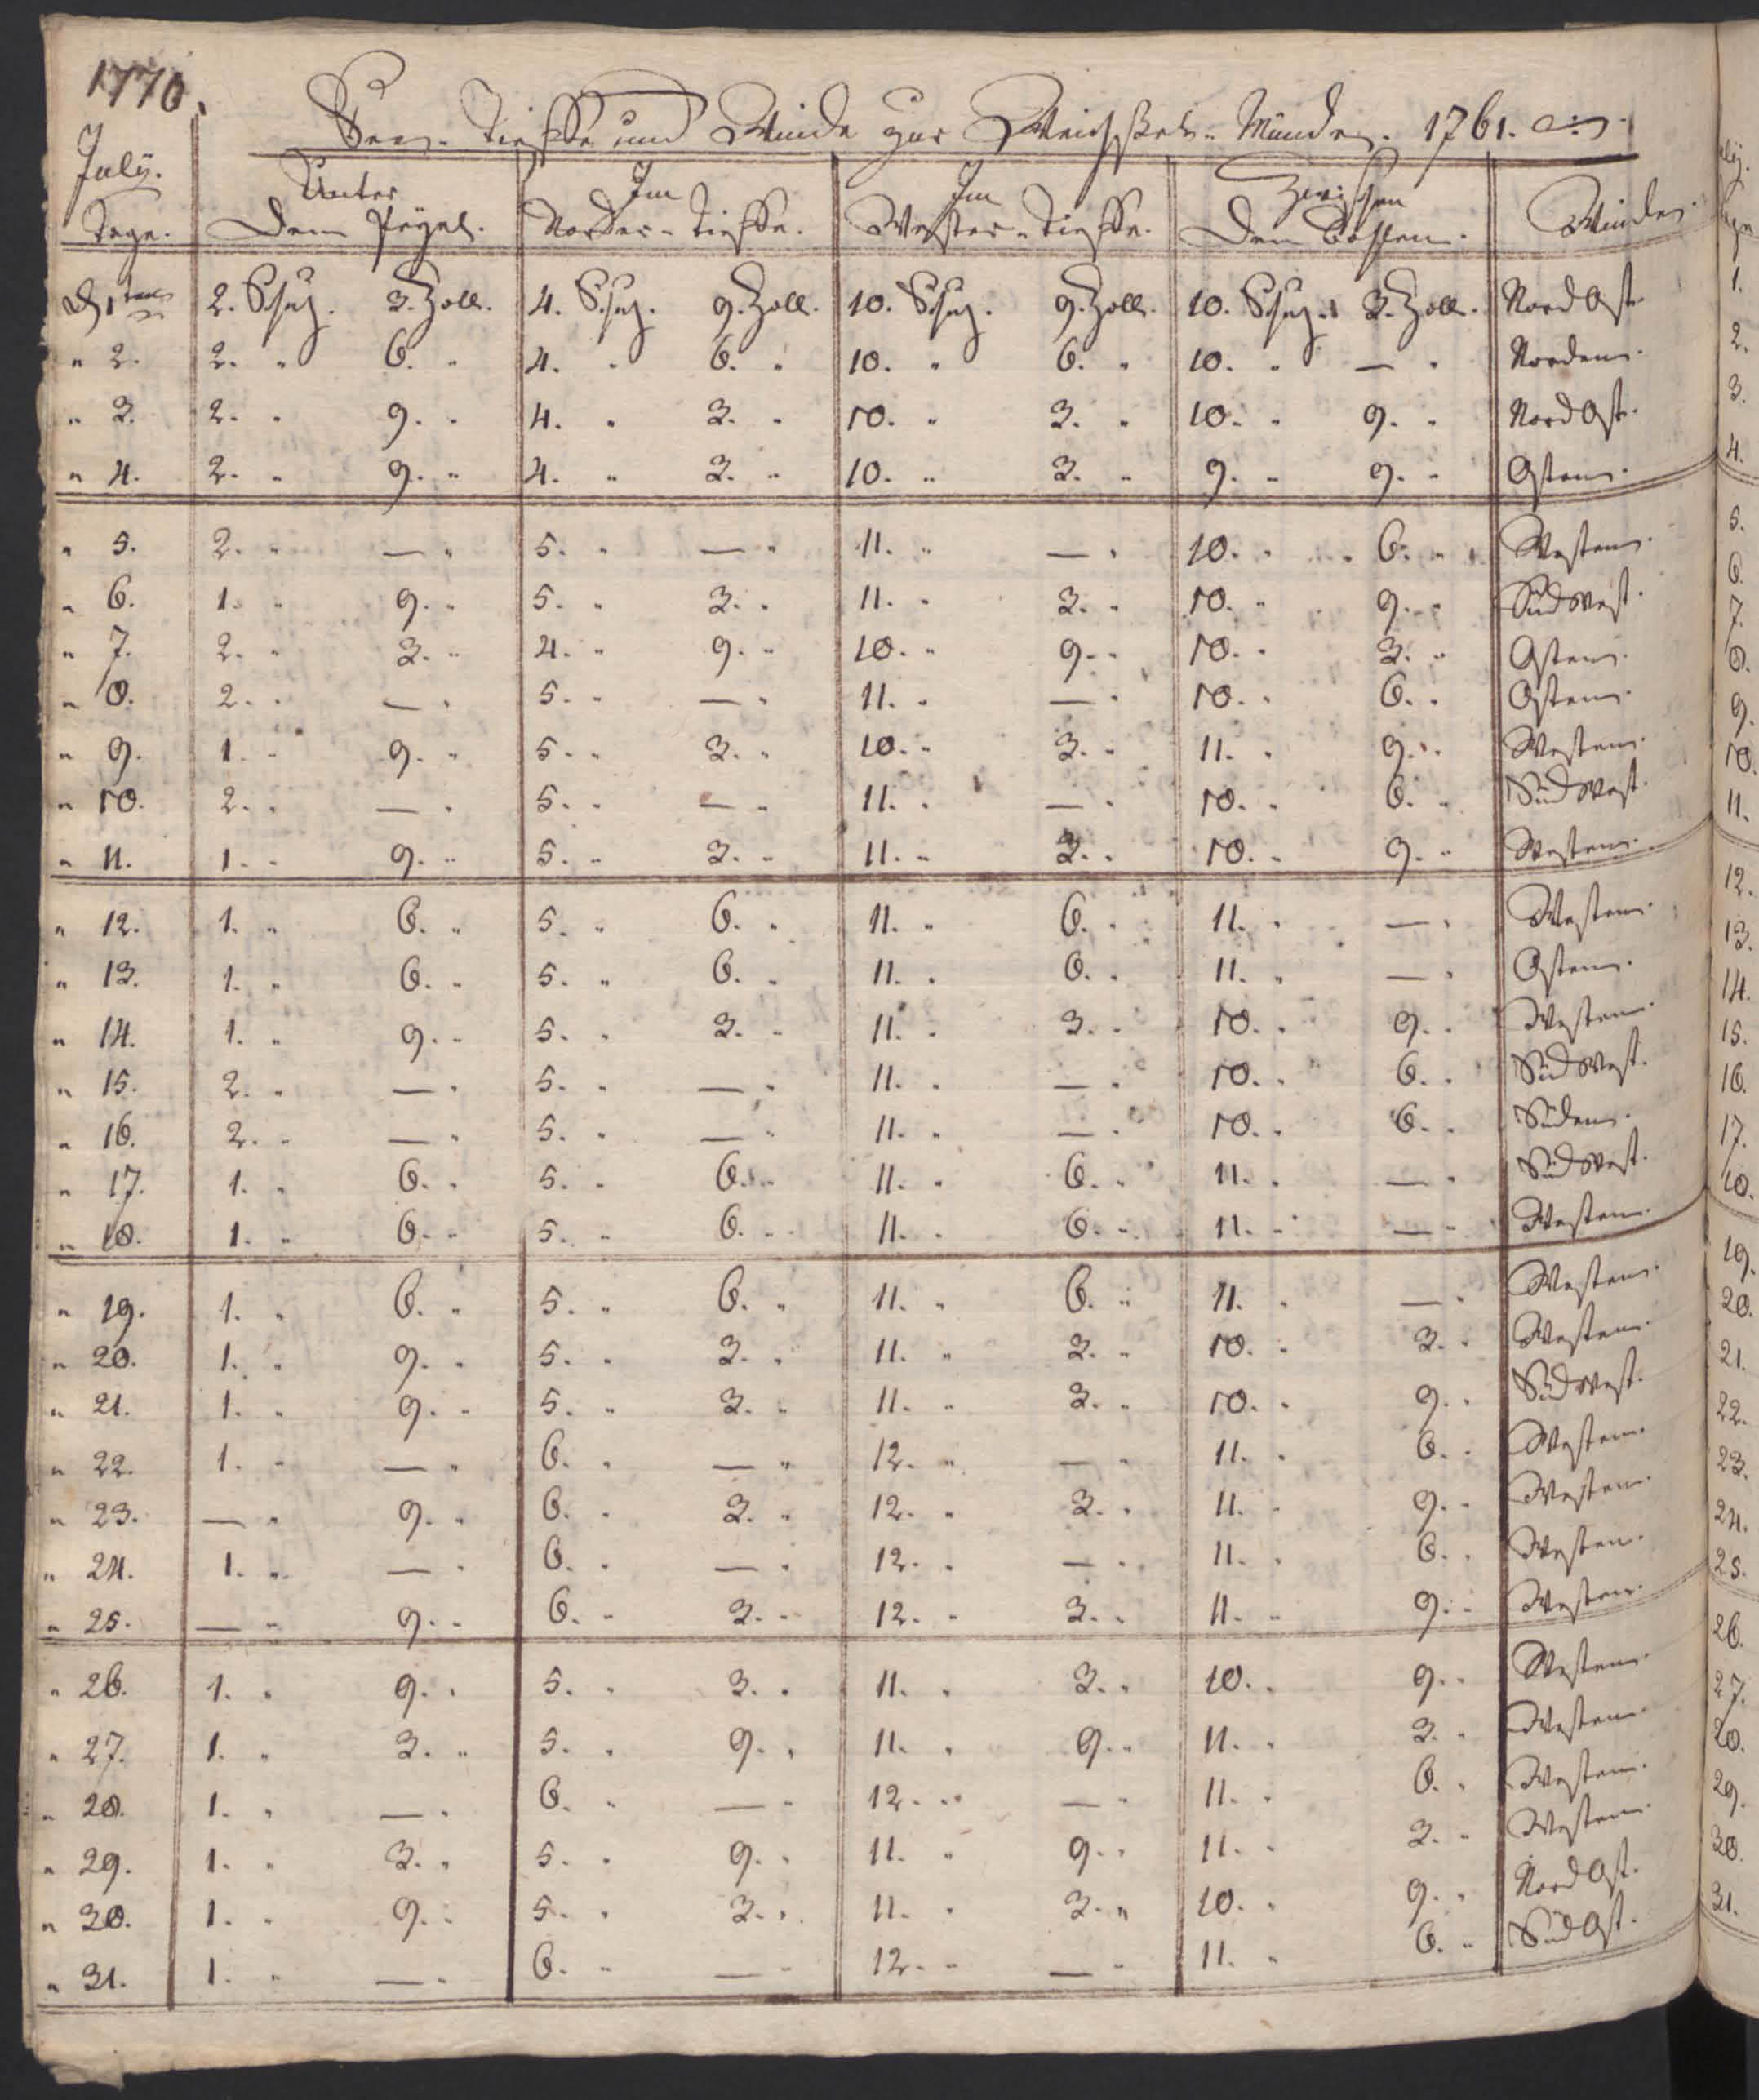 1770.
See-Tieffe und Winde zur Weichsel-Münde. 1761.
July.
Tage. Unter Dem Pegel. Im Norder-Tieffe. Im Wester-Tieffe. Zwischen Den Bohlen. Winde.
D 1ten 2. Schu. 3. Zoll. 4. Schu. 9. Zoll. 10. Schu. 9. Zoll. 10. Schu. 3. Zoll. Nord Ost.
" 2. 2. " 6. " 4. " 6. " 10. " 6. " 10. " — " Norden.
" 3. 2. " 9. " 4. " 3. " 10. " 3. " 10. " 9. " Nord Ost.
" 4. 2. " 9. " 4. " 3. " 10. " 3. " 9. " 9. " Osten.
" 5. 2. " — " 5. " — " 11. " — " 10. " 6. " Westen.
" 6. 1. " 9. " 5. " 3. " 11. " 3. " 10. " 9. " Südwest.
" 7. 2. " 3. " 4. " 9. " 10. " 9. " 10. " 3. " Osten.
" 8. 2. " — " 5. " — " 11. " — " 10. " 6. " Osten.
" 9. 1. " 9. " 5. " 3. " 10. " 3. " 11. " 9. " Westen.
" 10. 2. " — " 5. " — " 11. " — " 10. " 6. " Südwest.
" 11. 1. " 9. " 5. " 3. " 11. " 3. " 10. " 9. " Westen.
" 12. 1. " 6. " 5. " 6. " 11. " 6. " 11. " — " Westen.
" 13. 1. " 6. " 5. " 6. " 11. " 6. " 11. " — " Osten.
" 14. 1. " 9. " 5. " 3. " 11. " 3. " 10. " 9. " Westen.
" 15. 2. " — " 5. " — " 11. " — " 10. " 6. " Südwest.
" 16. 2. " — " 5. " — " 11. " — " 10. " 6. " Süden.
" 17. 1. " 6. " 5. " 6. " 11. " 6. " 11. " — " Südwest.
" 18. 1. " 6. " 5. " 6. " 11. " 6. " 11. " — " Westen.
" 19. 1. " 6. " 5. " 6. " 11. " 6. " 11. " — " Westen.
" 20. 1. " 9. " 5. " 3. " 11. " 3. " 10. " 3. " Westen.
" 21. 1. " 9. " 5. " 3. " 11. " 3. " 10. " 9. " Südwest.
" 22. 1. " — " 6. " — " 12. " — " 11. " 6. " Westen.
" 23. — " 9. " 6. " 3. " 12. " 3. " 11. " 9. " Westen.
" 24. 1. " — " 6. " — " 12. " — " 11. " 6. " Westen.
" 25. — " 9. " 6. " 3. " 12. " 3. " 11. " 9. " Westen.
" 26. 1. " 9. " 5. " 3. " 11. " 3. " 10. " 9. " Westen.
" 27. 1. " 3. " 5. " 9. " 11. " 9. " 11. " 3. " Westen.
" 28. 1. " — " 6. " — " 12. " — " 11. " 6. " Westen.
" 29. 1. " 3. " 5. " 9. " 11. " 9. " 11. " 3. " Westen.
" 30. 1. " 9. " 5. " 3. " 11. " 3. " 10. " 9. " Nord Ost.
" 31. 1. " — " 6. " — " 12. " — " 11. " 6. " Süd Ost.
1.
2.
3.
4.
5.
6.
7.
8.
9.
10.
11.
12.
13.
14.
15.
16.
17.
18.
19.
20.
21.
22.
23.
24.
25.
26.
27.
28.
29.
30.
31.